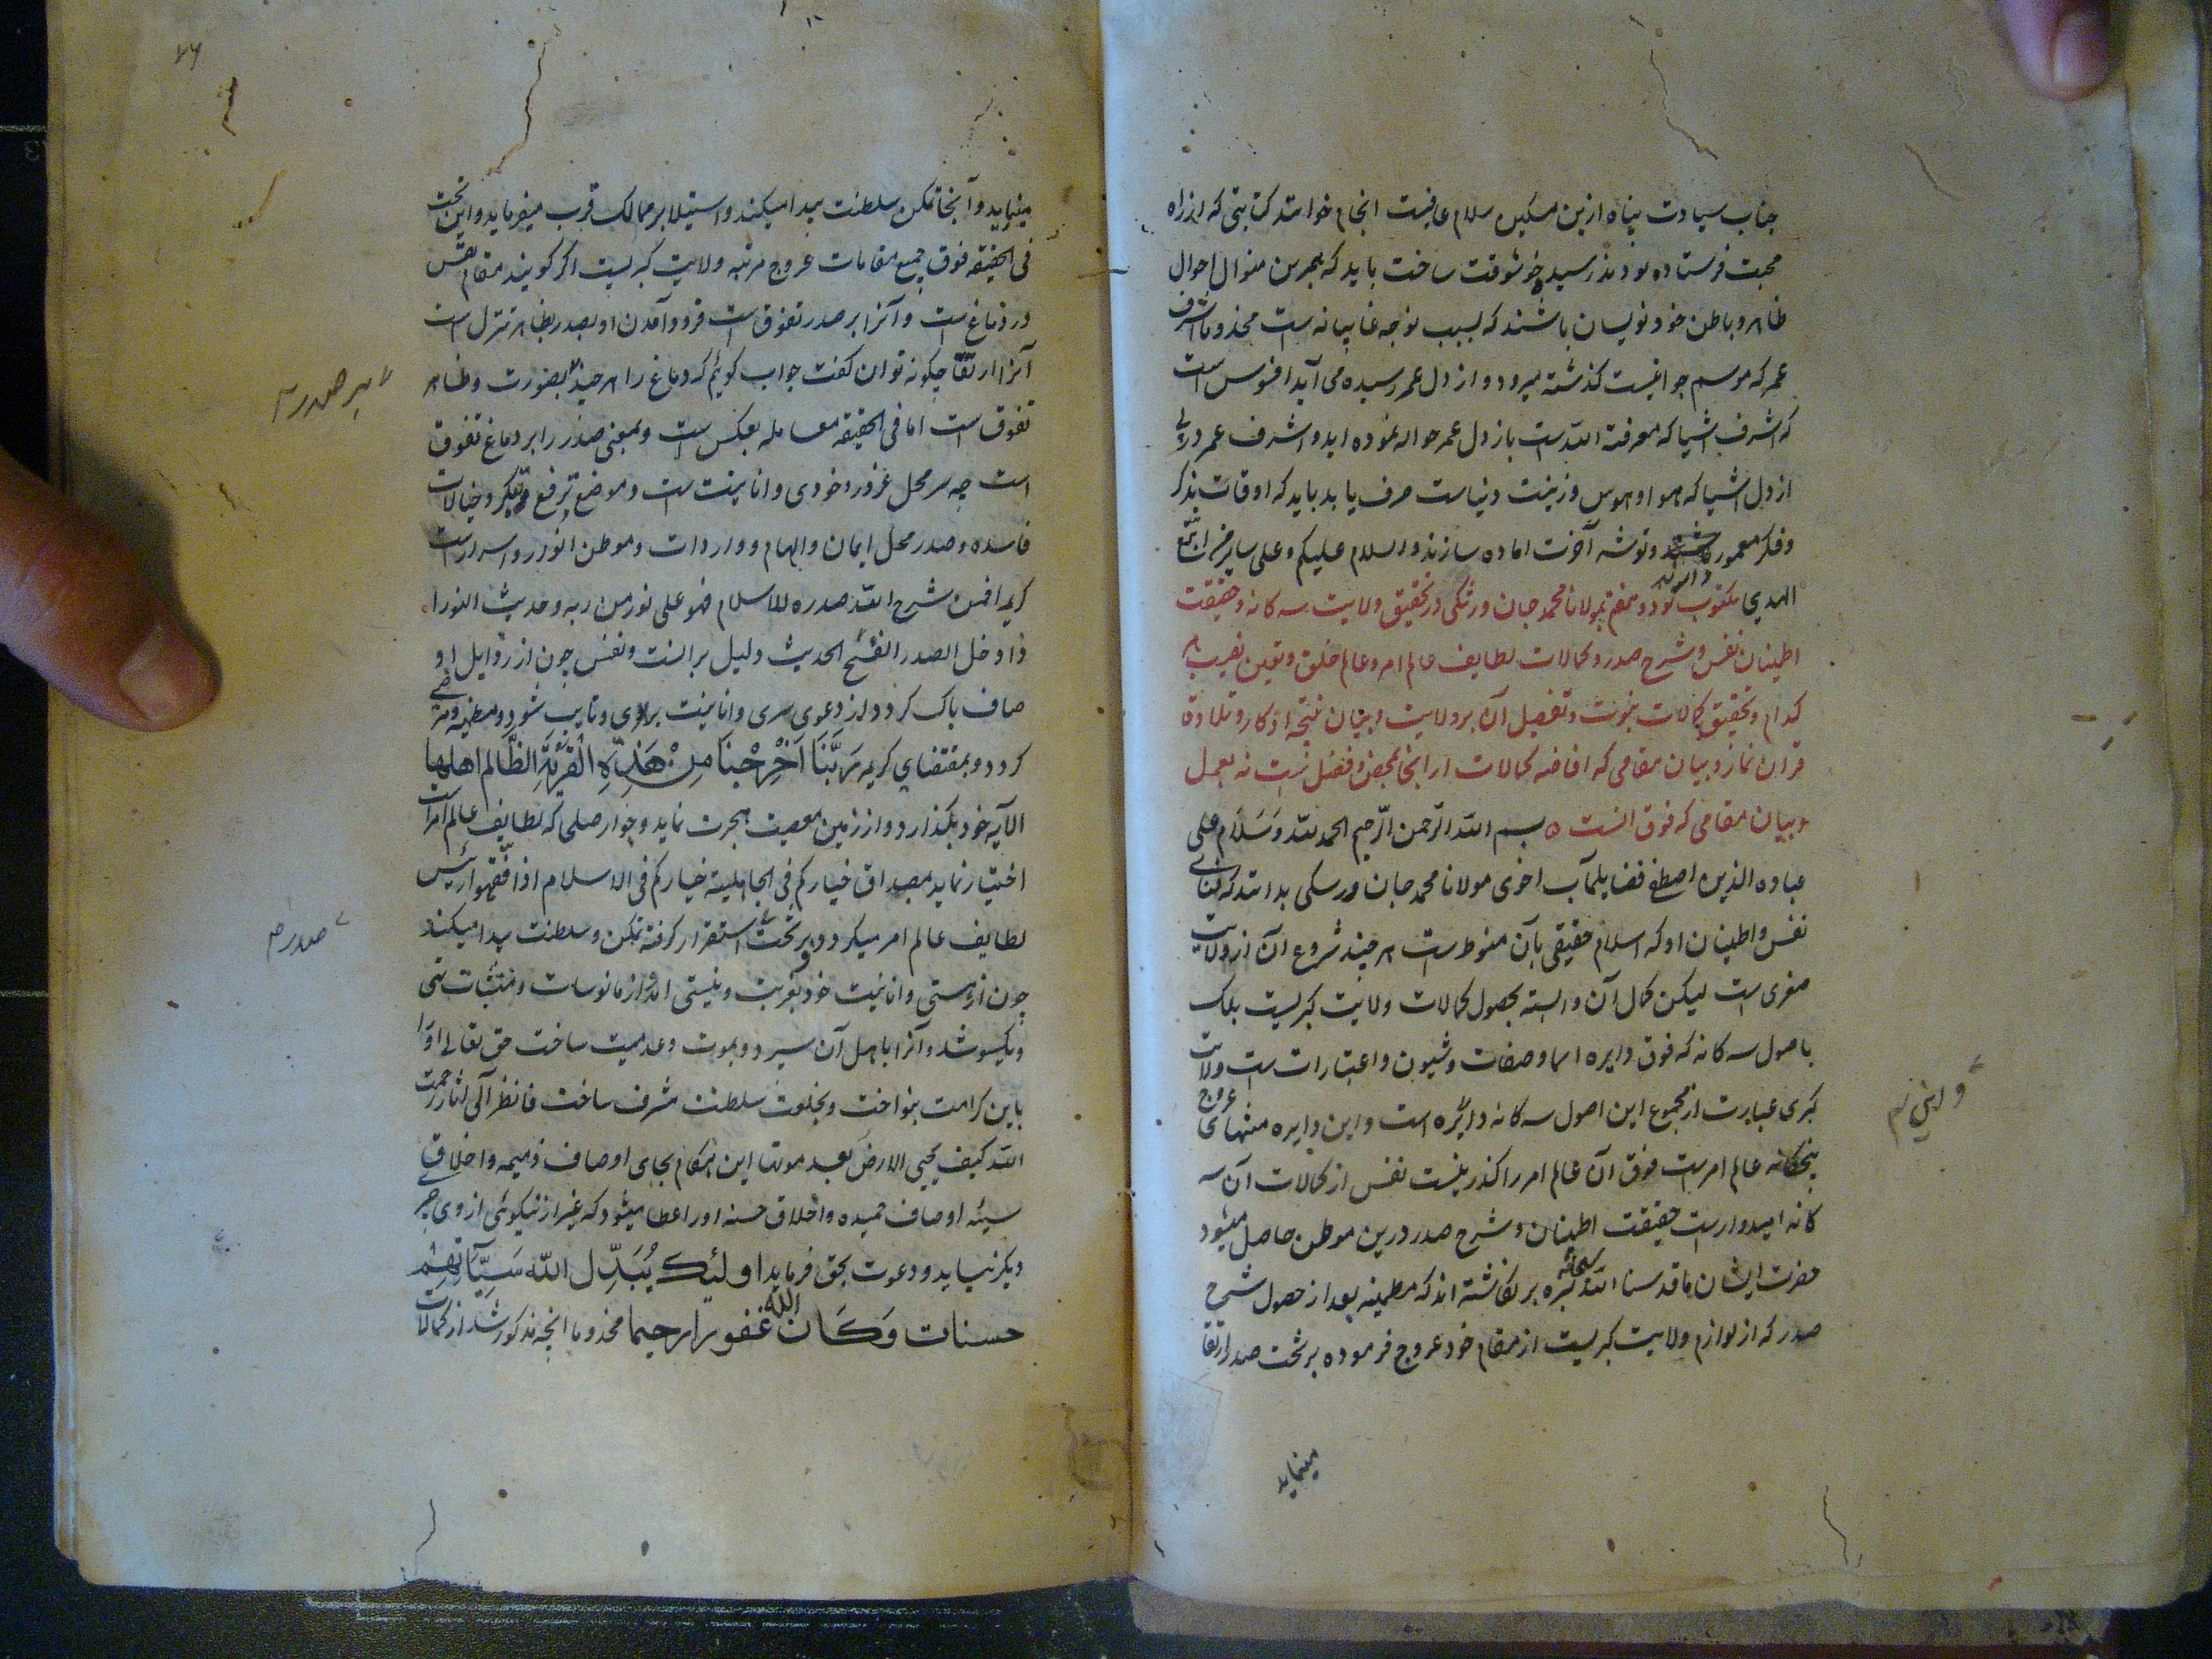 جناب سیادت پناه ازین مسکین سلام عافیت انجام خوانند کتابتی که از راه
محبت فرستاده بودند رسید خوشوقت ساخت باید که بهمرین منوال احوال
ظاهر و باطن خود نویسان باشند که بسبب توجه غایبانه است مخدوما اشرف
عمر که موسم جوانیست گذشته میرود و ارذل عمر رسیده می آید افسوس است
که اشرف اشیا که معرفة الله است بارذل عمر حواله نموده اید و اشرف عمر در
ارذل اشیا که هوا و هوس و زینت دنیاست صرف یابد باید که اوقات بذکر
و فکر معمور و توشه آخرت اماده سازند والسلام علیکم و علی سایر من اتبع
الهدی مکتوب نود و هفتم بمولانا محمد جان ورسکی در تحقیق ولایت سه کانه و حقیقت
اطمینان نفس و شرح صدر و کمالات لطایف عالم امر و عالم خلق و تعین
کدام و تحقیق کمالات نبوت و تفضیل آن بر ولایت و بیان نتیجه اذکار و تلاوة
قران نماز و بیان مقامی که افاضه کمالات در انجا بمحض فضل است نه بعمل
و بیان مقامی که فوق انست ه بسم الله الرحمن الرحیم الحمد لله و سلام علی
عباده الذین اصطفی فضایلمآب اخوی مولانا محمد جان ورسکی بدانند که فنای
نفس و اطمینان او که اسلام حقیقی بآن منوط است هر چند شروع آن از ولایت
صغری است لیکن کمال آن وابسته بحصول کمالات ولایت کبریست بلک
باصول سه کانه که فوق دایره اسما و صفات و شیون و اعتبارات است ولایت
کبری عبارت از مجموع این اصول سه کانه و دایره است و این دایره منتهای عروج
پنجکانه عالم امر است فوق آن عالم امر را گذر نیست نفس از کمالات آن سه
کانه امیدوار است حقیقت اطمینان و شرح صدر درین موطن حاصل میشود
حضرت ایشان ما قدسنا الله سبحانه بسره برنگاشته اند که مطمئنه بعد از حصول شرح
صدر که از لوازم ولایت کبریست از مقام خود عروج فرموده بر تخت صدر ارتقا
مینماید
مینماید و آنجا تمکن سلطنت پیدا میکند و استیلا بر ممالک قرب میفرماید و این تخت
فی الحقیقه فوق جمیع مقامات عروج مرتبه ولایت کبریست اگر گویند مقام نفس
در دماغ است و آنرا بر صدر تفوق است فرود آمدن او بصدر بظاهر تنزل است
آنرا ارتقا چگونه توان گفت جواب گوئیم که دماغ را هر چند بصورت و ظاهر
تفوق است اما فی الحقیقه معامله بعکس است و بمعنی صدر را بر دماغ تفوق
است چه سر محل غرور و خودی و انانیت است و موضع ترفع و تکبر و خیالات
فاسده و صدر محل ایمان و الهام و واردات و موطن انوار و اسرار است
کریمه افمن شرح الله صدره للاسلام فهو علی نور من ربه و حدیث النور
اذا دخل الصدر انفسح الحدیث دلیل بر انست و نفس چون از رذایل او
صاف پاک گردد و از دعوی سری و انانیت بر اوی و تایب شود و مطمئنه و مرضیه
گردد و بمقتضای کریمه رَبَّنَا أَخْرِجْنَا مِنْ هَذِهِ الْقَرْيَةِ الظَّالِمِ اهلها
الآیه خود بگذارد و از زمین معصیت هجرت نماید و جوار صلحی که لطایف عالم امر است
اختیار نماید بمصداق خیارکم فی الجاهلیة خیارکم فی الاسلام اذا فقهوا رئیس
لطایف عالم امر میگردد و بر تخت استقرار گرفته تمکن و سلطنت پیدا میکند
چون از هستی و انانیت خود بغربت و نیستی آمد و از مانوسات و مثبتات تهی
و یکسو شد و آنرا باهل آن سپرد و بموت و عدمیت ساخت حق تعالی او را
باین کرامت بنواخت و بخلعت سلطنت مشرف ساخت فانظر الی اثار رحمت
الله کیف یحیی الارض بعد موتها این هنگام بجای اوصاف ذمیمه و اخلاق
سیئه اوصاف حمیده و اخلاق حسنه او را عطا میشود که غیر از نیکوئی از وی چیز
دیگر نیاید و دعوت بحق فرماید اولئک يُبَدِّل الله سَيِّئَاتِهِم
حسنات وَكَانَ الله غفورا رحیما مخدوما انچه مذکور شد از کمالات
صدر م